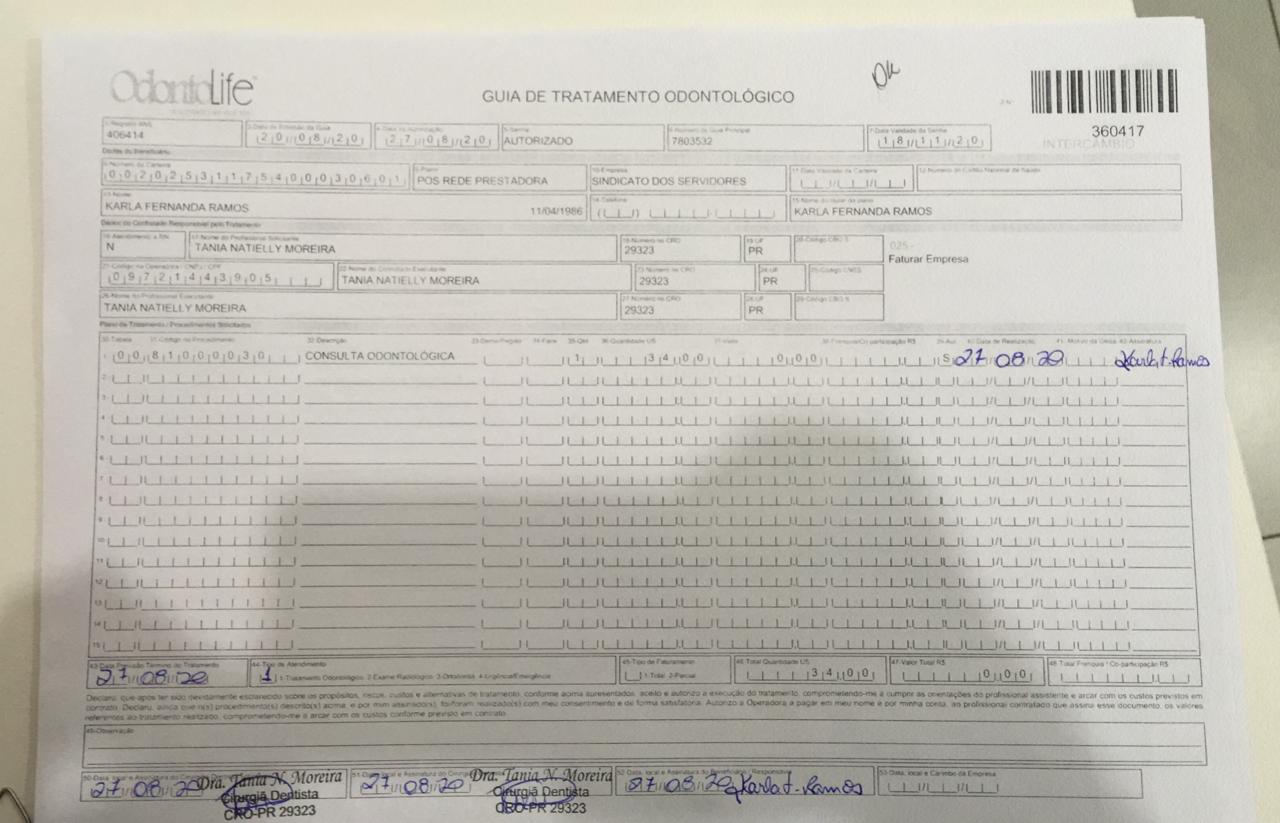 OdontoLife
GUIA DE TRATAMENTO ODONTOLÓGICO
OK
2-Nº
360417
INTERCÂMBIO
1-Registro ANS
406414
3-Data de Emissão da Guia
20/08/20
4-Data de Autorização
27/08/20
5-Senha
AUTORIZADO
6-Número da Guia Principal
7803532
7-Data Validade da Senha
18/11/20
Dados do Beneficiário
8-Número da Carteira
00202531175400030601
9-Plano
POS REDE PRESTADORA
10-Empresa
SINDICATO DOS SERVIDORES
11-Data Validade da Carteira
12-Número do Cartão Nacional de Saúde
13-Nome
KARLA FERNANDA RAMOS 11/04/1986
14-Telefone
15-Nome do titular do plano
KARLA FERNANDA RAMOS
Dados do Contratado Responsável pelo Tratamento
16-Atendimento a RN
N
17-Nome do Profissional Solicitante
TANIA NATIELLY MOREIRA
18-Número no CRO
29323
19-UF
PR
20-Código CBO S
025 -
Faturar Empresa
21-Código na Operadora / CNPJ / CPF
09721443905
22-Nome do Contratado Executante
TANIA NATIELLY MOREIRA
23-Número no CRO
29323
24-UF
PR
25-Código CNES
26-Nome do Profissional Executante
TANIA NATIELLY MOREIRA
27-Número no CRO
29323
28-UF
PR
29-Código CBO S
Plano de Tratamento / Procedimentos Solicitados
30-Tabela 31-Código do Procedimento 32-Descrição 33-Dente/Região 34-Face 35-Qtd 36-Quantidade US 37-Valor 38-Franquia/Co-participação R$ 39-Aut 40-Data de Realização 41-Motivo da Glosa 42-Assinatura
1- 00 81000030 CONSULTA ODONTOLÓGICA 1 34,00 0,00 S 27/08/20 Karla F. Ramos
2-
3-
4-
5-
6-
7-
8-
9-
10-
11-
12-
13-
14-
15-
43-Data Previsão Término do Tratamento
27/08/20
44-Tipo de Atendimento
1 1-Tratamento Odontológico 2-Exame Radiológico 3-Ortodontia 4-Urgência/Emergência
45-Tipo de Faturamento
1-Total 2-Parcial
46-Total Quantidade US
34,00
47-Valor Total R$
0,00
48-Total Franquia / Co-participação R$
Declaro, que após ter sido devidamente esclarecido sobre os propósitos, riscos, custos e alternativas de tratamento, conforme acima apresentados, aceito e autorizo a execução do tratamento, comprometendo-me a cumprir as orientações do profissional assistente e arcar com os custos previstos em
contrato. Declaro, ainda que o(s) procedimento(s) descrito(s) acima, e por mim assinado(s), foi/foram realizado(s) com meu consentimento e de forma satisfatória. Autorizo a Operadora a pagar em meu nome e por minha conta, ao profissional contratado que assina esse documento, os valores
referentes ao tratamento realizado, comprometendo-me a arcar com os custos conforme previsto em contrato.
49-Observação
50-Data, local e Assinatura do
27/08/20
Dra. Tania N. Moreira
Cirurgiã Dentista
CRO-PR 29323
51-Data, local e Assinatura do
27/08/20
Dra. Tania N. Moreira
Cirurgiã Dentista
CRO-PR 29323
52-Data, local e Assinatura do Beneficiário / Responsável
27/08/20 Karla F. Ramos
53-Data, local e Carimbo da Empresa